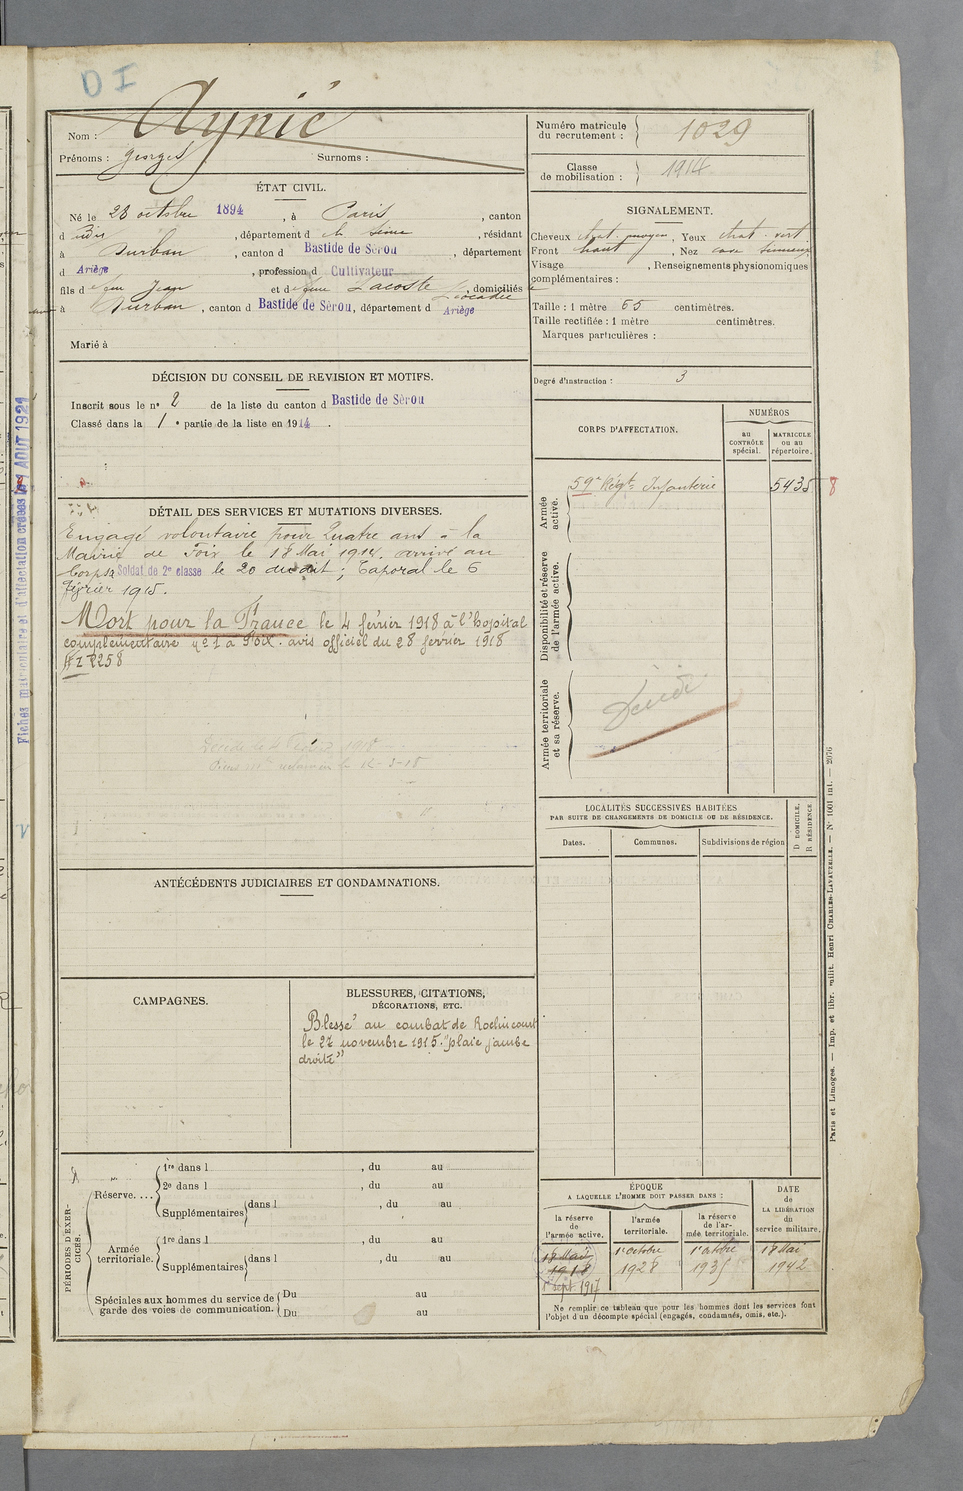 D I
Nom : Aynié
Prénoms : Georges Surnoms :
Numéro matricule du recrutement : 1029
Classe de mobilisation : 1914
ÉTAT CIVIL.
Né le 28 octobre 1894, à Paris, canton
d dudit, département d e la Seine, résidant
à Durban, canton d Bastide de Sérou, département
d Ariège, profession d Cultivateur
fils d e feu Jean et d e feue Lacoste Léocadie, domiciliés
à Durban, canton d Bastide de Sérou, département d Ariège
Marié à
SIGNALEMENT.
Cheveux chat. moyen, Yeux chat. vert
Front haut, Nez
Visage , Renseignements physionomiques
complémentaires :
Taille : 1 mètre 65 centimètres.
Taille rectifiée : 1 mètre centimètres.
Marques particulières :
Degré d'instruction : 3
DÉCISION DU CONSEIL DE REVISION ET MOTIFS.
Inscrit sous le nº 2 de la liste du canton d Bastide de Sérou
Classé dans la 1 e partie de la liste en 1914.
DÉTAIL DES SERVICES ET MUTATIONS DIVERSES.
Engagé volontaire pour Quatre ans à la
Mairie de Foix le 18 Mai 1914, arrivé au
Corps Soldat de 2e classe le 20 dudit ; Caporal le 6
février 1915.
Mort pour la France le 4 février 1918 à l'hopital
complémentaire nº 1 à Foix. avis officiel du 28 fevrier 1918
2258
CORPS D'AFFECTATION.
NUMÉROS
au CONTRÔLE spécial.
MATRICULE ou au répertoire.
Armée active.
59e Régt Infanterie 5435 8
Disponibilité et réserve de l'armée active.
Armée territoriale et sa réserve.
Décédé
LOCALITÉS SUCCESSIVES HABITÉES
PAR SUITE DE CHANGEMENTS DE DOMICILE OU DE RÉSIDENCE.
Dates. Communes. Subdivisions de région
D DOMICILE. R RÉSIDENCE.
ANTÉCÉDENTS JUDICIAIRES ET CONDAMNATIONS.
CAMPAGNES.
BLESSURES, CITATIONS,
DÉCORATIONS, ETC.
Blessé au combat de Roclincourt
le 27 novembre 1915. "plaie jambe
droite"
PÉRIODES D'EXERCICES.
Réserve....
1re dans l , du au
2e dans l , du au
Supplémentaires dans l , du au
Armée territoriale.
1re dans l , du au
Supplémentaires dans l , du au
Spéciales aux hommes du service de
garde des voies de communication.
Du au
Du au
ÉPOQUE
A LAQUELLE L'HOMME DOIT PASSER DANS :
la réserve de l'armée active.
l'armée territoriale.
la réserve de l'armée territoriale.
DATE de LA LIBÉRATION du service militaire.
18 Mai 1918
1er sept. 1917
1er octobre 1928
1er octobre 1935
18 Mai 1942
Ne remplir ce tableau que pour les hommes dont les services font
l'objet d'un décompte spécial (engagés, condamnés, omis, etc.).
Paris et Limoges. — Imp. et libr. milit. Henri CHARLES-LAVAUZELLE. — Nº 1001 int. — 2076